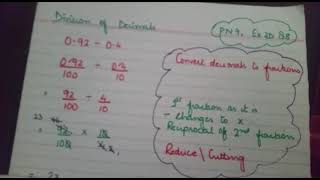 Division of Decimals
PN 9, Ex 2D Q8
0.92 ÷ 0.4
Convert decimals to fractions
0.92 ÷ 0.4
100 10
92 ÷ 4
100 10
1st fraction as it is
÷ changes to x
Reciprocal of 2nd fraction
23 46
92 x 10
100 4
Reduce \ Cutting
= 23